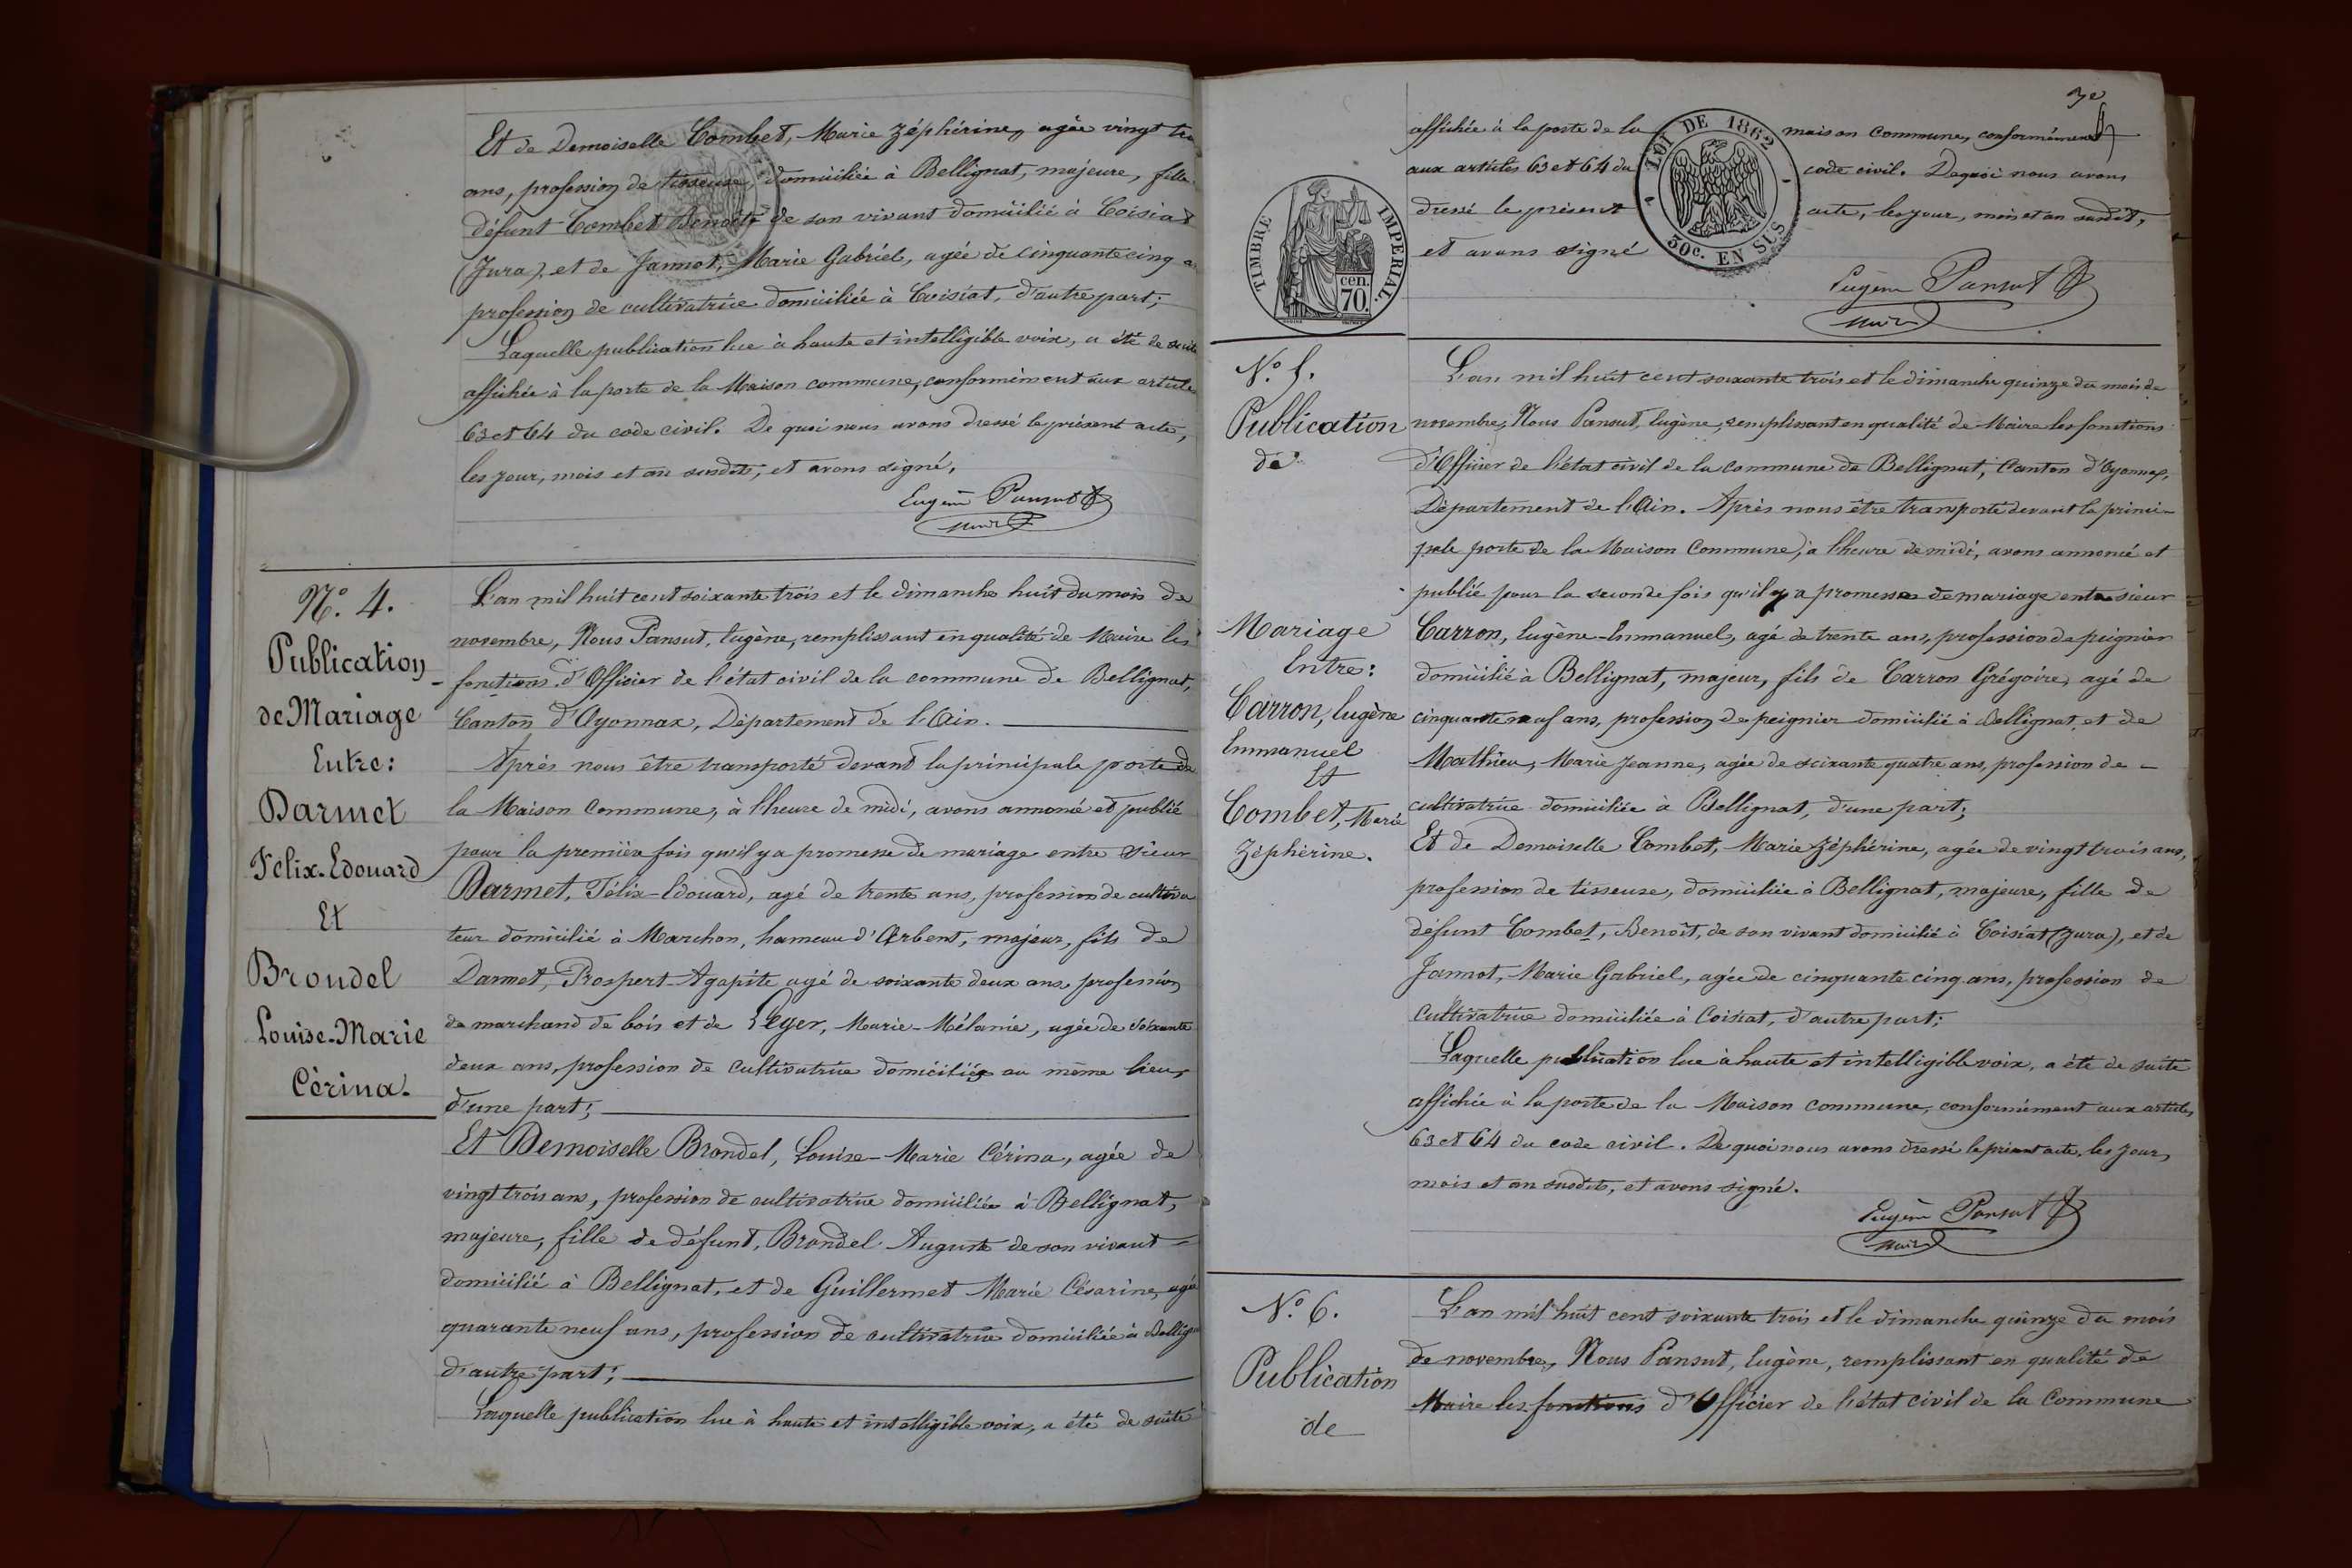 Et de Demoiselle Combet, Marie Zéphérine, agée vingt
ans, profession de tisseuse, domiciliée à Bellignat, majeure, fille
défunt Combet Benoît, de son vivant domicilié à Coisiat
(Jura), et de Jannet, Marie Gabriel, agée de cinquante cinq
profession de cultivatrice domiciliée à Coisiat, d'autre part;
Laquelle publication lue à haute et intelligible voix, a été de suite
affichée à la porte de la Maison commune, conformément aux articles
63 et 64 du code civil. De quoi nous avons dressé le présent acte,
les jour, mois et an susdits, et avons signé,
Eugène Pansut
Maire
N.º 4.
Publication
de Mariage
Entre:
Darmet
Félix-Edouard
Et
Brondel
Louise-Marie
Cérina.
L'an mil huit cent soixante trois et le dimanche huit du mois de
novembre, Nous Pansut, Eugène, remplissant en qualité de Maire les
fonctions d'Officier de l'état civil de la commune de Bellignat,
Canton d'Oyonnax, Département de l'Ain.
Après nous être transporté devant la principale porte de
la Maison commune, à l'heure de midi, avons annoncé et publié
pour la première fois qu'il y a promesse de mariage entre Sieur
Darmet, Félix-Edouard, agé de trente ans, profession de cultiva
teur domicilié à Marchon, hameau d'Arbent, majeur, fils de
Darmet, Prospert-Agapite agé de soixante deux ans profession
de marchand de bois et de Leger, Marie-Mélanie, agée de soixante
deux ans, profession de cultivatrice domiciliés au même lieu,
d'une part;
Et Demoiselle Brondel, Louise-Marie Cérina, agée de
vingt trois ans, profession de cultivatrice domiciliée à Bellignat,
majeure, fille de défunt, Brondel Auguste de son vivant
domicilié à Bellignat, et de Guillermet Marie Césarine, agée
quarante neuf ans, profession de cultivatrice domiciliée à
d'autre part;
Laquelle publication lue à haute et intelligible voix, a été de suite
affichée à la porte de la maison commune, conformément
aux articles 63 et 64 du code civil. De quoi nous avons
dressé le présent acte, les jour, mois et an susdits,
et avons signé
LOI DE 1862
50c. EN SUS
TIMBRE IMPERIAL.
cen. 70.
Eugène Pansut
Maire
N.º 5.
Publication
de
Mariage
Entre:
Carron, Eugène
Emmanuel
Et
Combet, Marie
Zéphérine.
L'an mil huit cent soixante trois et le dimanche quinze du mois de
novembre, Nous Pansut, Eugène, remplissant en qualité de Maire les fonctions
d'Officier de l'état civil de la commune de Bellignat, Canton d'Oyonnax,
Département de l'Ain. Après nous être transporté devant la princi-
pale porte de la Maison Commune, à l'heure de midi, avons annoncé et
publié pour la seconde fois qu'il y a promesse de mariage entre sieur
Carron, Eugène-Emmanuel, agé de trente ans, profession de peignier
domicilié à Bellignat, majeur, fils de Carron Grégoire, agé de
cinquante neuf ans, profession de peignier domicilié à Bellignat, et de
Mathieu, Marie Jeanne, agée de soixante quatre ans, profession de -
cultivatrice domiciliée à Bellignat, d'une part;
Et de Demoiselle Combet, Marie Zéphérine, agée de vingt trois ans,
profession de tisseuse, domiciliée à Bellignat, majeure, fille de
défunt Combet, Benoît, de son vivant domicilié à Coisiat (Jura), et de
Jannet, Marie Gabriel, agée de cinquante cinq ans, profession de
Cultivatrice domiciliée à Coisiat, d'autre part;
Laquelle publication lue à haute et intelligible voix, a été de suite
affichée à la porte de la Maison commune, conformément aux articles
63 et 64 du code civil. De quoi nous avons dressé le présent acte, les jour,
mois et an susdits, et avons signé.
Eugène Pansut
Maire
N.º 6.
Publication
de
L'an mil huit cent soixante trois et le dimanche quinze du mois
de novembre, Nous Pansut, Eugène, remplissant en qualité de
Maire les fonctions d'Officier de l'état civil de la Commune